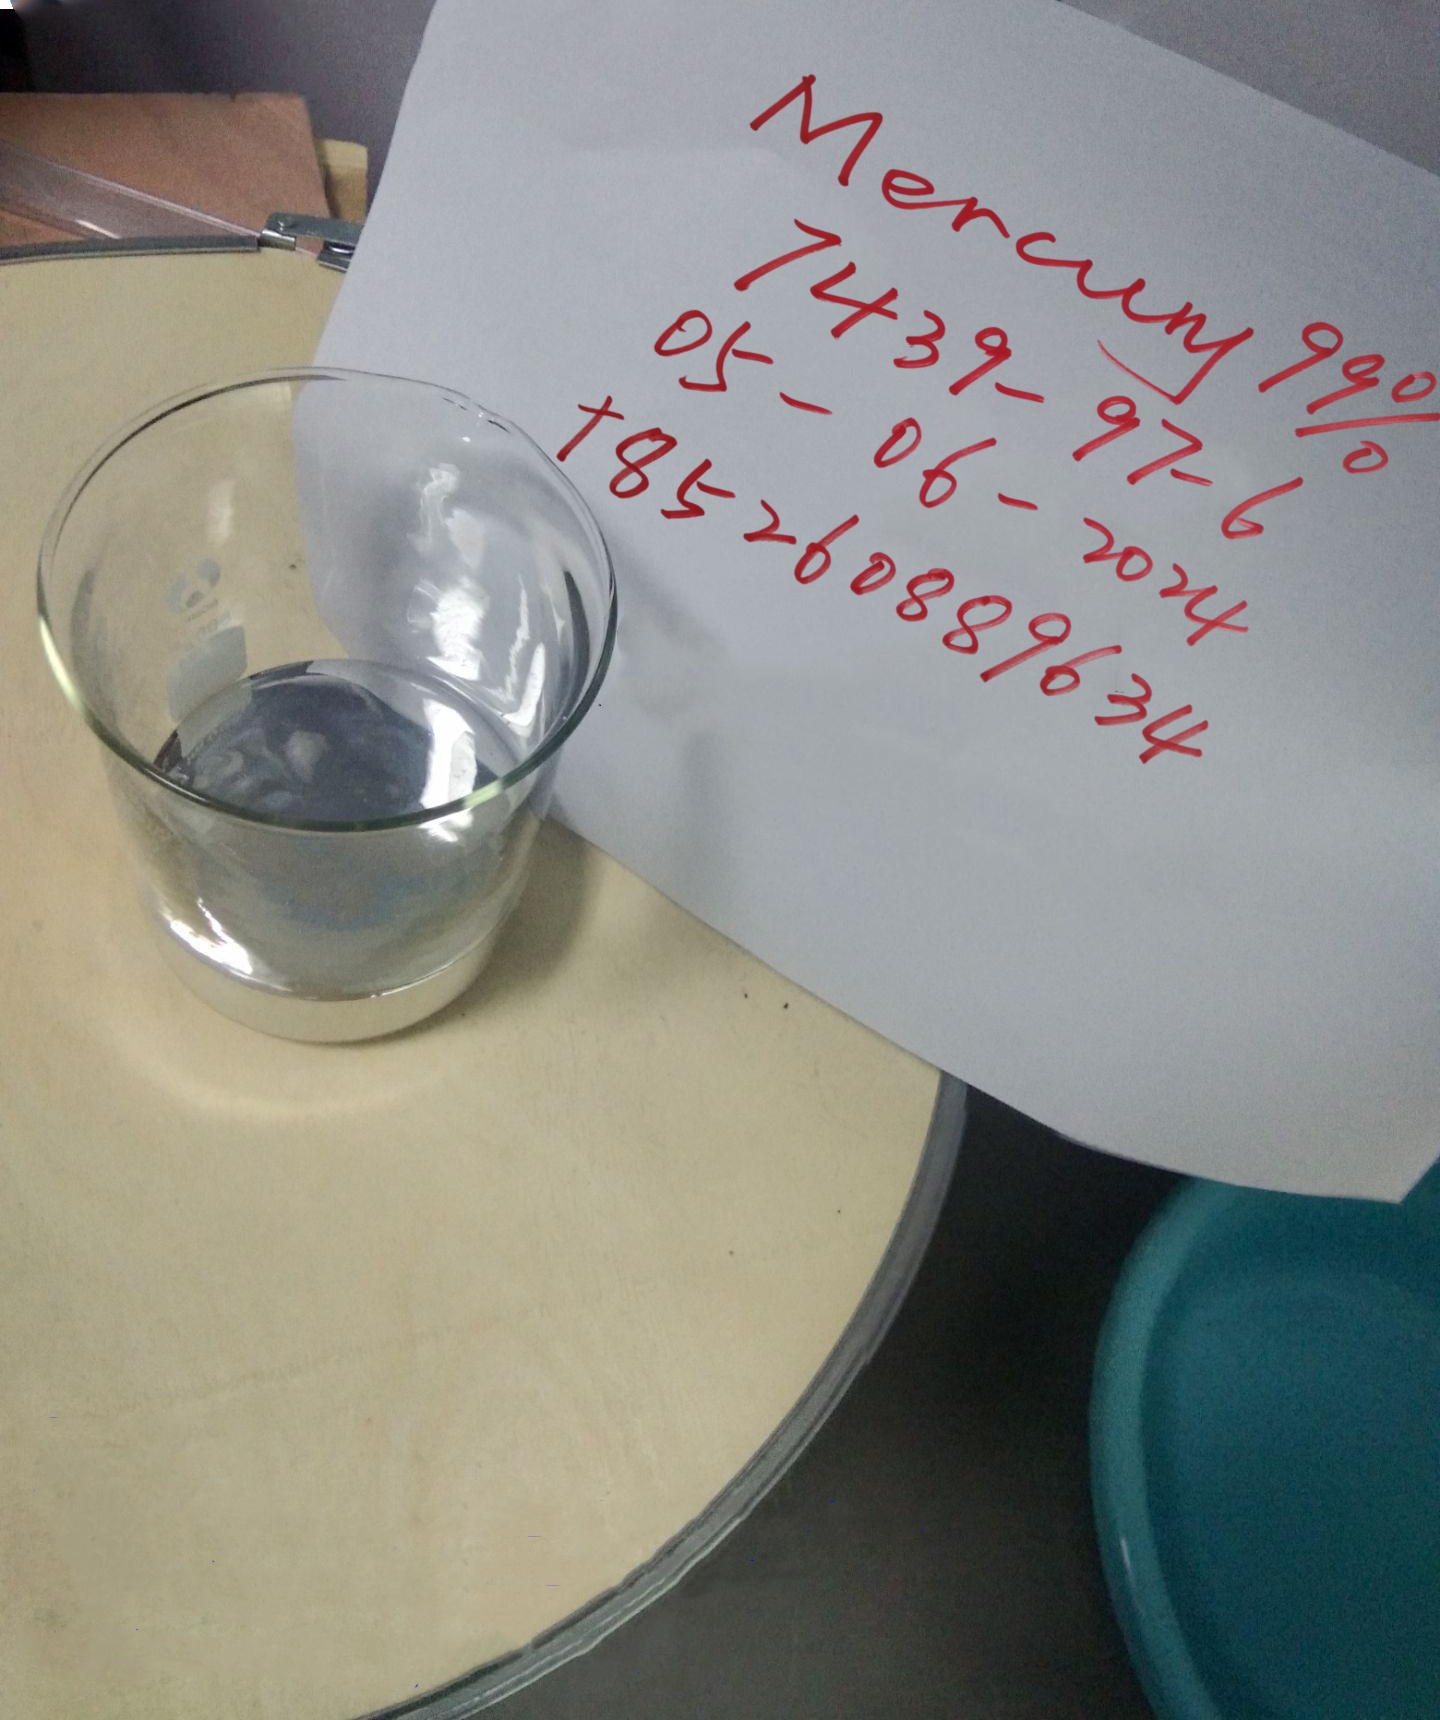 Mercury 99%
7439-97-6
05-06-2024
+85260889634